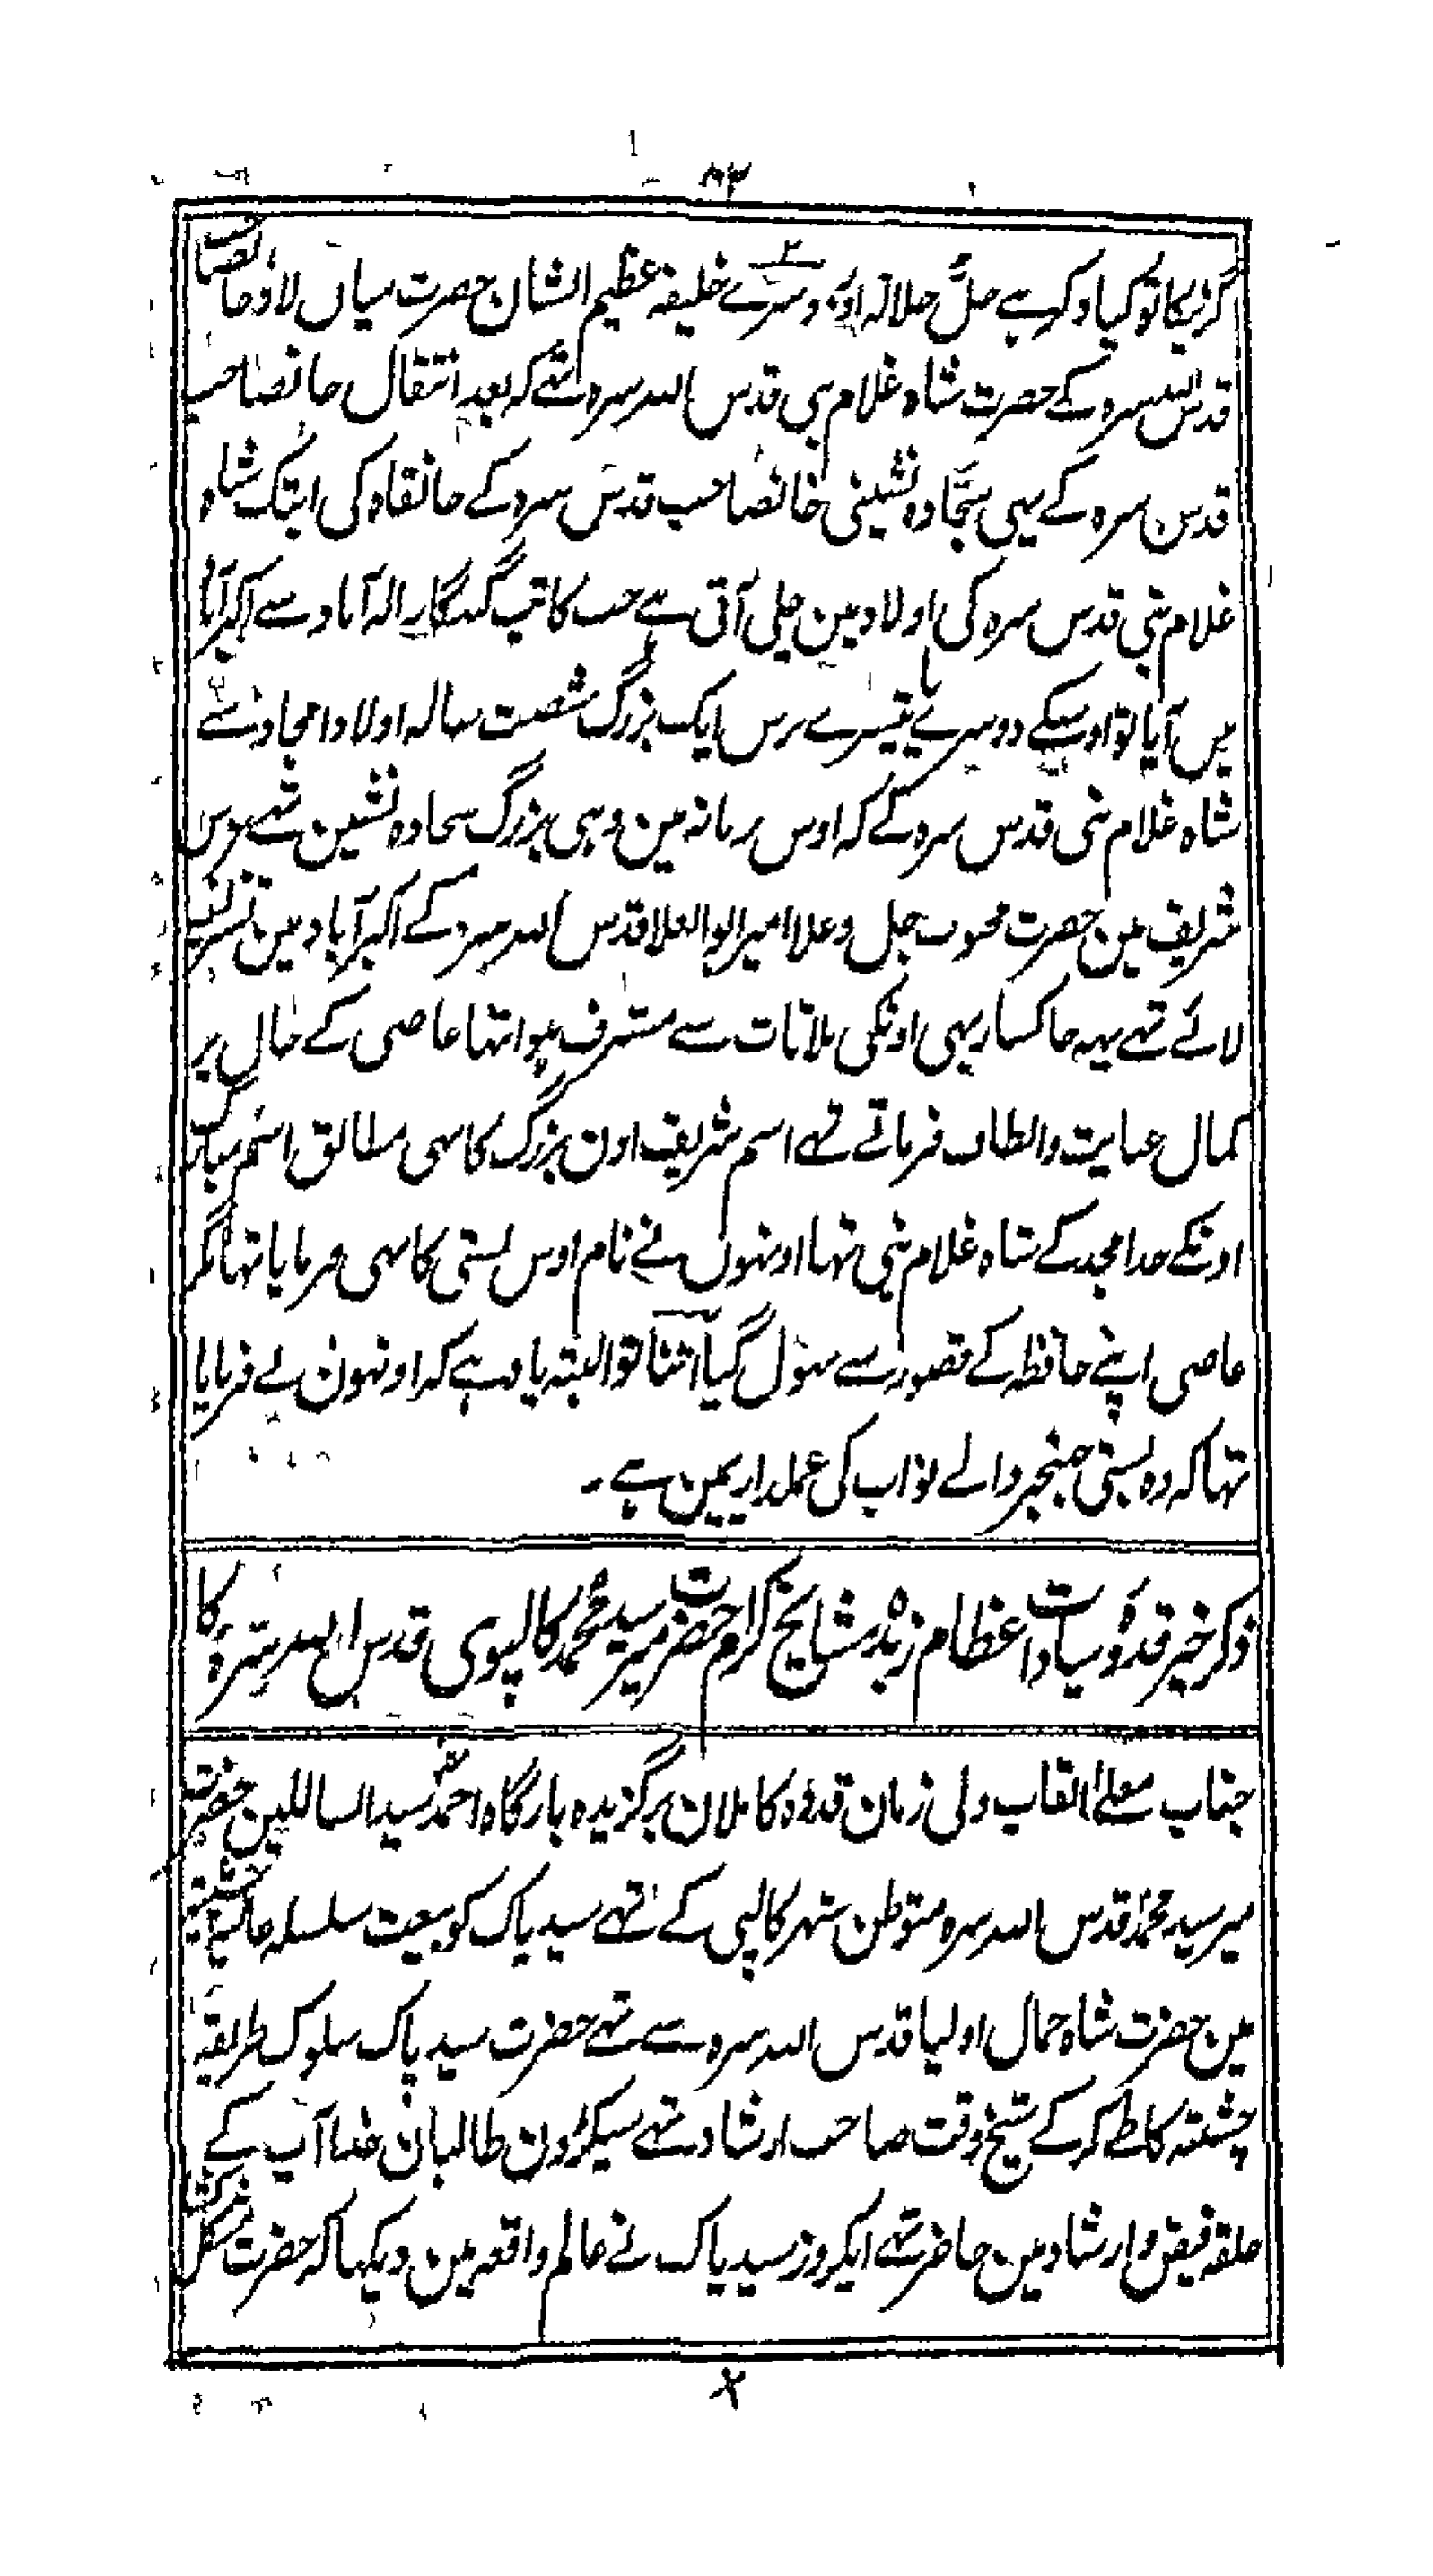 ۸۳
کا تو کیا ذکر ہے جل جلالہ اور دوسرے خلیفہ عظیم الشان حضرت میاں لاڈخانصاحب
قدس اللہ سرہ کے حضرت شاہ غلام نبی قدس اللہ سرہ تھے کہ بعد انتقال خانصاحب
قدس سرہ کے یہی سجادہ نشینی خانصاحب قدس سرہ کے خانقاہ کی ابتک شاہ
غلام نبی قدس سرہ کی اولاد مین چلی آتی ہے جب کاتب گنہگار الہ آباد سے اکبرآباد
میں آیا تو اوسیکے دوسرے یا تیسرے برس ایک بزرگ شصت سالہ اولاد امجاد سے
شاہ غلام نبی قدس سرہ کے کہ اوس زمانہ مین وہی بزرگ سجادہ نشین تہے عرس
شریف مین حضرت محبوب جل وعلا امیر ابوالعلا قدس اللہ سرہ کے اکبرآباد مین تشریف
لائے تہے یہہ خاکسار بہی اونکی ملاقات سے مشرف ہوا تہا عاصی کے حال پر
کمال عنایت والطاف فرماتے تہے اسم شریف اون بزرگ کا بہی مطابق اسم مبارک
اونکے جد امجد کے شاہ غلام نبی تہا اونہوں نے نام اوس بستی کا بہی فرمایا تہا مگر
عاصی اپنے حافظہ کے قصور سے بہول گیا اتنا تو البتہ یاد ہے کہ اونہون نے فرمایا
تہا کہ وہ بستی جہنجر والے نواب کی عملداریمین ہے ۔
ذکر خیر قدوۂ سادات عظام زبدۂ مشایخ کرام حضرت میر سید محمد کالپوی قدس اللہ سرہ کا
جناب معلےٰ القاب ولی زمان قدوۂ کاملان برگزیدہ بارگاہ احمد سید السالکین حضرت
میر سید محمد قدس اللہ سرہ متوطن شہر کالپی کے تہے سید پاک کو بیعت سلسلہ عالیہ چشتیہ
مین حضرت شاہ جمال اولیا قدس اللہ سرہ سے تہے حضرت سید پاک سلوک طریقہ
چشتیہ کا طے کر کے شیخ وقت صاحب ارشاد تہے سیکڑون طالبان خدا آپ کے
حلقہ فیض وارشاد مین حاضر تہے ایکروز سید پاک نے عالم واقعہ مین دیکہا کہ حضرت